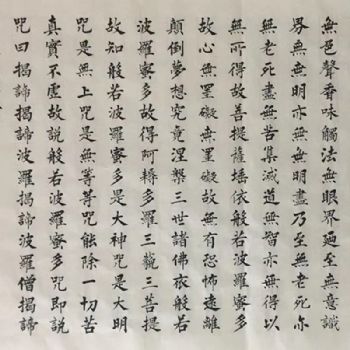 無色聲香味觸法無眼界廼至無意識
界無無明亦無無明盡乃至無老死亦
無老死盡無苦集滅道無智亦無得以
無所得故菩提薩埵依般若波羅蜜多
故心無罣礙無罣礙故無有恐怖遠離
顛倒夢想究竟涅槃三世諸佛依般若
波羅蜜多故得阿耨多羅三藐三菩提
故知般若波羅蜜多是大神咒是大明
咒是無上咒是無等等咒能除一切苦
真實不虛故說般若波羅蜜多咒即說
咒曰揭諦揭諦波羅揭諦波羅僧揭諦